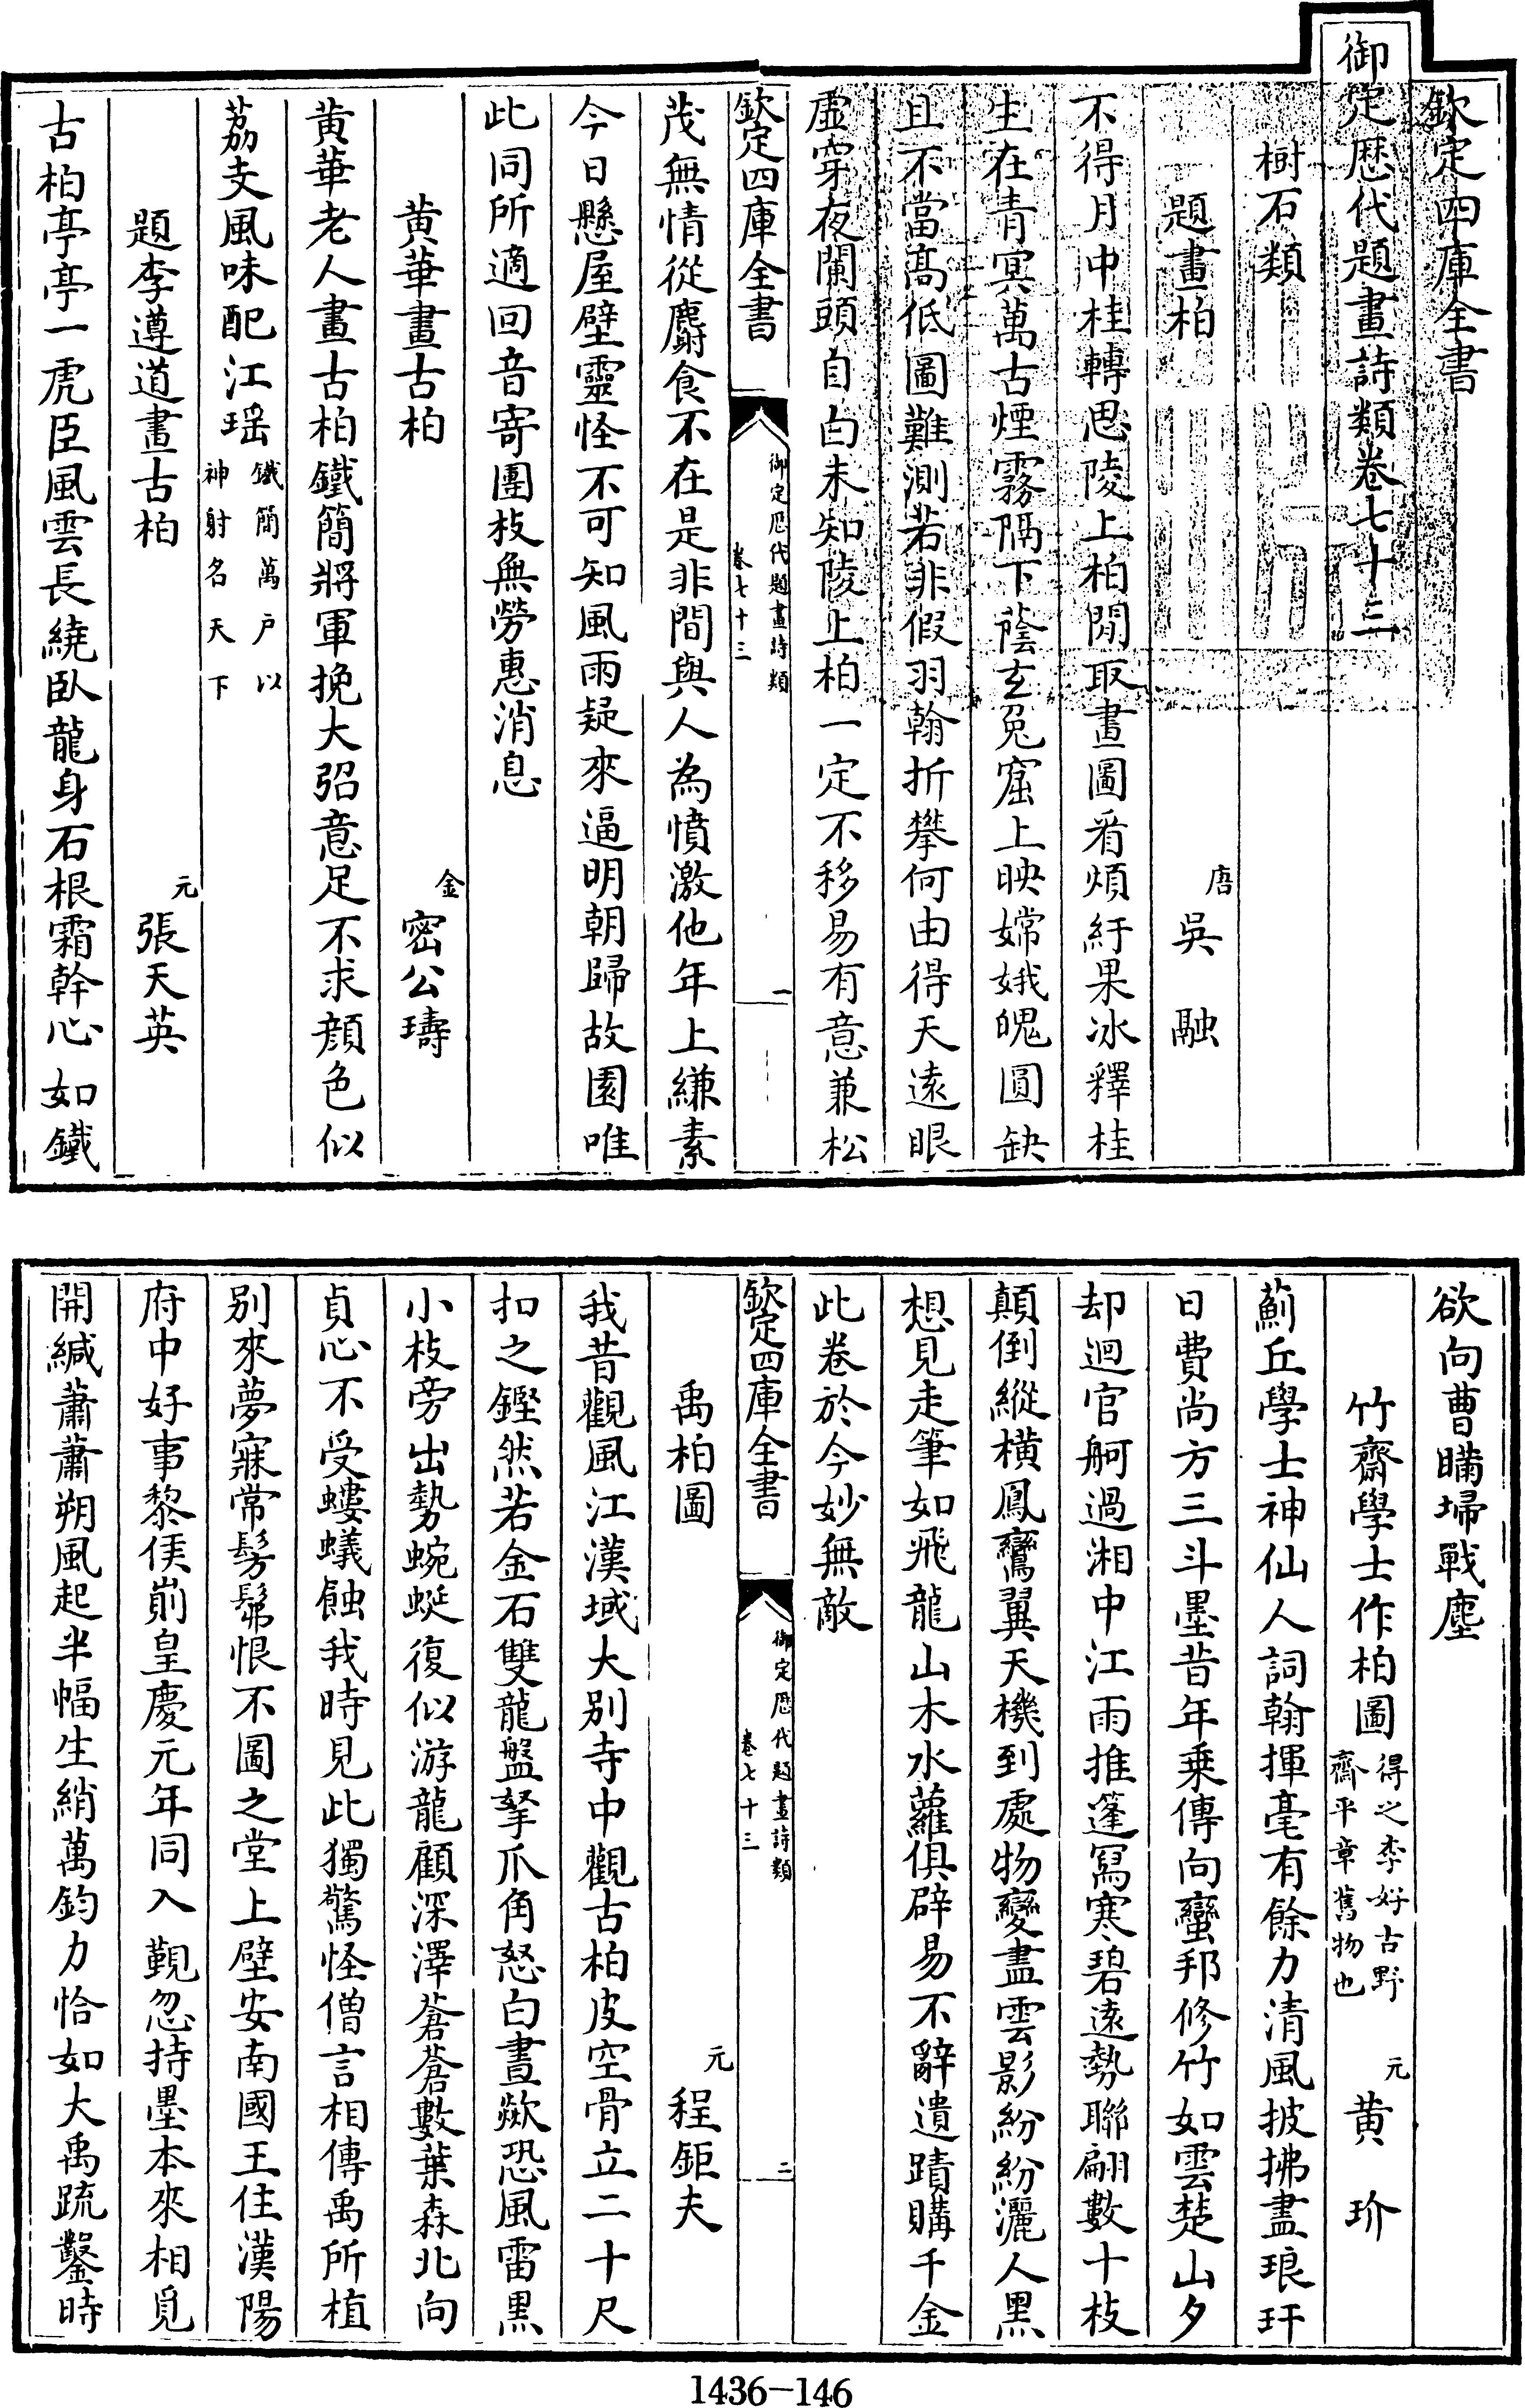 欽定四庫全書
御定歷代題畫詩類卷七十三
樹石類
題畫柏 唐 吳融
不得月中桂轉思陵上柏閒取畫圖看煩紆果冰釋桂
生在青冥萬古煙霧隔下蔭玄兔窟上映嫦娥魄圓缺
且不當高低圖難測若非假羽翰折攀何由得天遠眼
虛穿夜闌頭自白未知陵上柏一定不移易有意兼松
欽定四庫全書 御定歷代題畫詩類 卷七十三 一
茂無情從麝食不在是非間與人為憤激他年上縑素
今日懸屋壁靈怪不可知風雨疑來逼明朝歸故園唯
此同所適回音寄團枝無勞惠消息
黃華畫古柏 金 密公璹
黃華老人畫古柏鐵簡將軍挽大弨意足不求顏色似
荔支風味配江瑤 鐵簡萬戶以神射名天下
題李遵道畫古柏 元 張天英
古柏亭亭一虎臣風雲長繞臥龍身石根霜幹心如鐵
欲向曹瞞埽戰塵
竹齋學士作柏圖 得之李好古野齋平章舊物也 元 黃玠
薊丘學士神仙人詞翰揮毫有餘力清風披拂盡琅玕
日費尚方三斗墨昔年乘傳向蠻邦修竹如雲楚山夕
却迴官舸過湘中江雨推篷寫寒碧遠勢聯翩數十枝
顛倒縱橫鳳鸞翼天機到處物變盡雲影紛紛灑人黑
想見走筆如飛龍山木水蘿俱辟易不辭遺蹟購千金
此卷於今妙無敵
欽定四庫全書 御定歷代題畫詩類 卷七十三 二
禹柏圖 元 程鉅夫
我昔觀風江漢域大別寺中觀古柏皮空骨立二十尺
扣之鏗然若金石雙龍盤拏爪角怒白晝歘恐風雷黑
小枝旁出勢蜿蜒復似游龍顧深澤蒼蒼數葉森北向
貞心不受螻蟻蝕我時見此獨驚怪僧言相傳禹所植
別來夢寐常髣髴恨不圖之堂上壁安南國王住漢陽
府中好事黎侯崱皇慶元年同入覲忽持墨本來相覓
開緘蕭蕭朔風起半幅生綃萬鈞力恰如大禹疏鑿時
1436-146